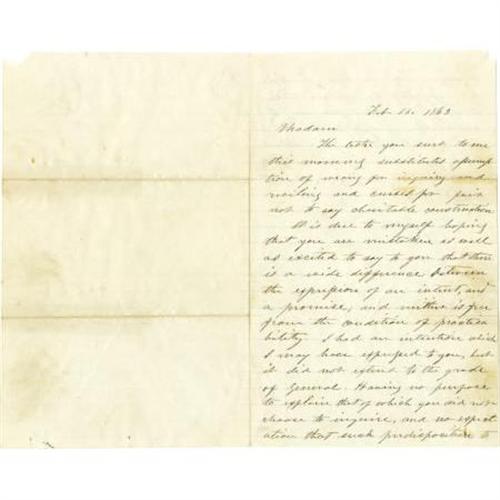 Feb 16. 1863
Madam
The letter you sent to me
this morning substitutes assump
tion of wrong for inquiry and
railing and curses for fair
not to say charitable construction
It is due to myself hoping
that you are mistaken as well
as excited to say to you that there
is a wide difference between
the expression of an intent, and
a promise, and neither is free
from the condition of practica
bility. I had an intention which
I may have expressed to you, but
it did not extend to the grade
of General. Having no purpose
to explain that of which you did not
choose to inquire, and no expect
ation that such predisposition to